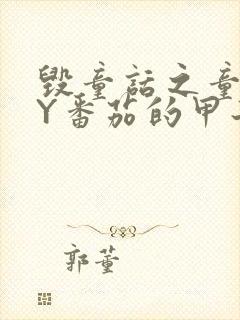 毁童话之童
Y番茄的甲
郭董